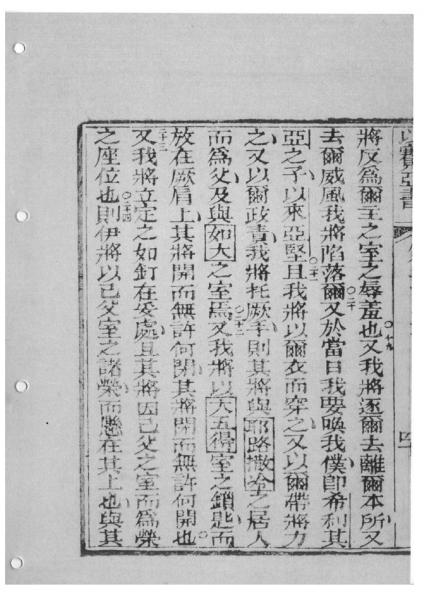 以賽亞書
將反爲爾主之室之辱羞也○十九又我將逐爾去離爾本所又
去爾威風我將陷落爾○二十又於當日我要喚我僕卽希利其
亞之子以來亞堅○二一且我將以爾衣而穿之又以爾帶將力
之又以爾政責我將托厥手則其將與耶路撒冷之居人
而爲父及與如大之室焉○二二又我將以大五得室之鎖匙而
放在厥肩上其將開而無許何閉其將閉而無許何開也○
二十三又我將立定之如釘在妥處且其將因己父之室而爲榮
之座位也○二十四則伊將以己父室之諸榮而懸在其上也與其